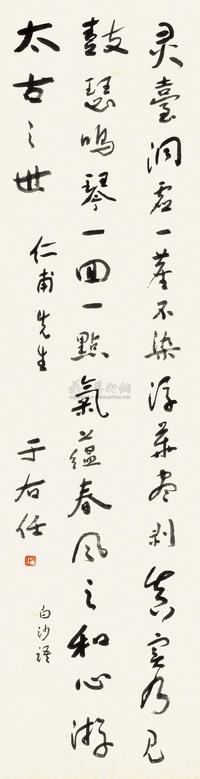 灵臺洞虚一塵不染浮華尽剥真实乃见
鼓瑟鸣琴一回一點氣蕴春风之和心游
太古之世
仁甫先生
于右任
白沙語